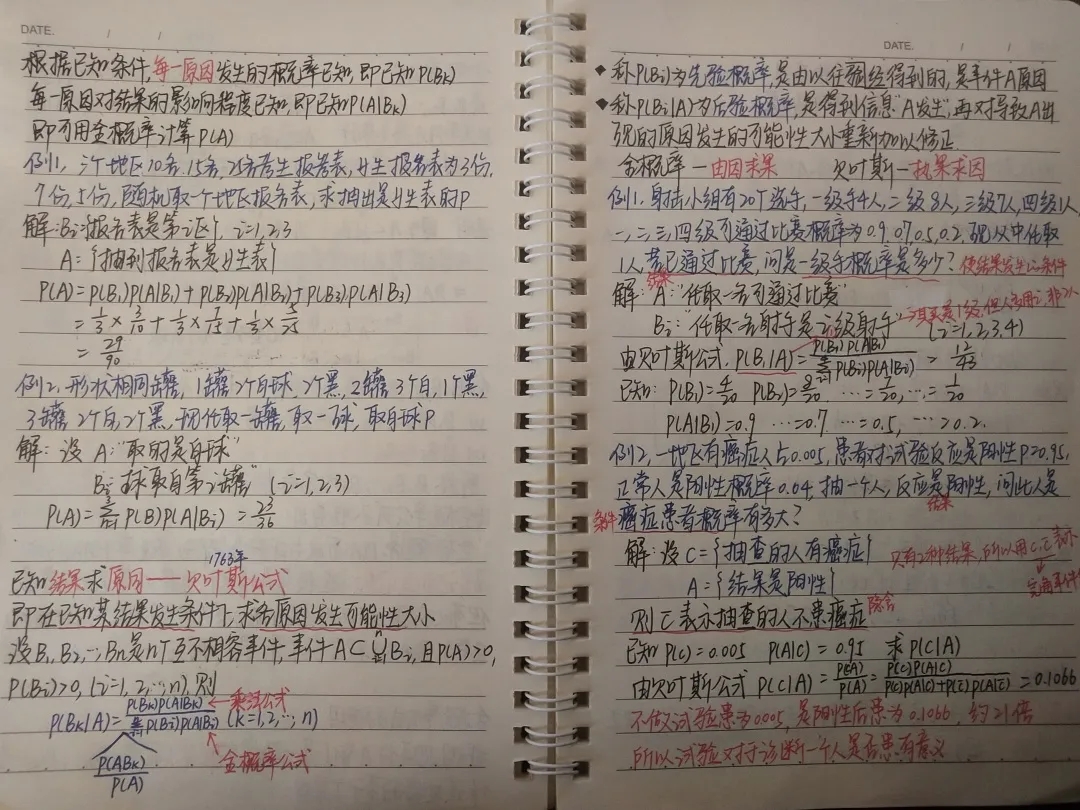 DATE. / /
根据已知条件,每一原因发生的概率已知,即已知P(Bk)
每一原因对结果的影响程度已知,即已知P(A|Bk)
即可用全概率计算P(A)
例1,三个地区10名,15名,25名考生报名表,女生报名表为3份,
7份,5份,随机取一个地区报名表,求抽出是女生表的P
解:Bi={报名表是第i区},i=1,2,3
A={抽到报名表是女生表}
P(A)=P(B1)P(A|B1)+P(B2)P(A|B2)+P(B3)P(A|B3)
=1/3×3/10+1/3×7/15+1/3×5/25
=29/90
例2,形状相同罐,1罐2个白球,2个黑,2罐3个白,1个黑,
3罐2个白,2个黑,现任取一罐,取一球,取白球P
解:设A:"取的是白球"
Bi:"球取自第i罐"(i=1,2,3)
P(A)=∑(i=1,3)P(B)P(A|Bi)=23/36
1763年
已知结果求原因——贝叶斯公式
即在已知某结果发生条件下,求各原因发生可能性大小
设B1,B2,…,Bn是n个互不相容事件,事件A⊂∪Bi,且P(A)>0,
P(Bi)>0,(i=1,2,…,n),则
P(Bk|A)=P(Bk)P(A|Bk)/∑P(Bi)P(A|Bi) (K=1,2,…,n)
←乘法公式
P(ABk)/P(A)
全概率公式
DATE. / /
◆称P(Bi)为先验概率,是由以往经验得到的,是事件A原因
◆称P(Bi|A)为后验概率,是得到信息"A发生",再对导致A出
现的原因发生的可能性大小重新加以修正.
全概率—由因求果 贝叶斯—执果求因
例1.射击小组有20个选手,一级手4人,二级8人,三级7人,四级1人
一,二,三,四级可通过比赛概率为0.9,0.7,0.5,0.2,现从中任取
1人,若已通过比赛,问是一级手概率是多少?使结果发生的条件
结果
解:A:"任取一名可通过比赛"
Bi:"任取一名射手是i级射手"(i=1,2,3,4)
由贝叶斯公式,P(B1|A)=P(B1)P(A|B1)/∑P(Bi)P(A|Bi)=12/43
已知:P(B1)=4/20 P(B2)=8/20 …=7/20,…=1/20
P(A|B1)=0.9 …=0.7 …=0.5,…=0.2.
例2,一地区有癌症人占0.005,患者对试验反应是阳性P=0.95,
正常人是阳性概率0.04,抽一个人,反应是阳性,问此人是
结果
条件 癌症患者概率有多大?
解:设C={抽查的人有癌症} 只有2种结果,所以用C,C̄表示
A={结果是阳性} 完备事件
则C̄表示抽查的人不患癌症
已知P(C)=0.005 P(A|C)=0.95 求P(C|A)
由贝叶斯公式P(C|A)=P(CA)/P(A)=P(C)P(A|C)/P(C)P(A|C)+P(C̄)P(A|C̄)=0.1066
不做试验患为0.005,是阳性后患为0.1066,约21倍
所以试验对于诊断一个人是否患有意义